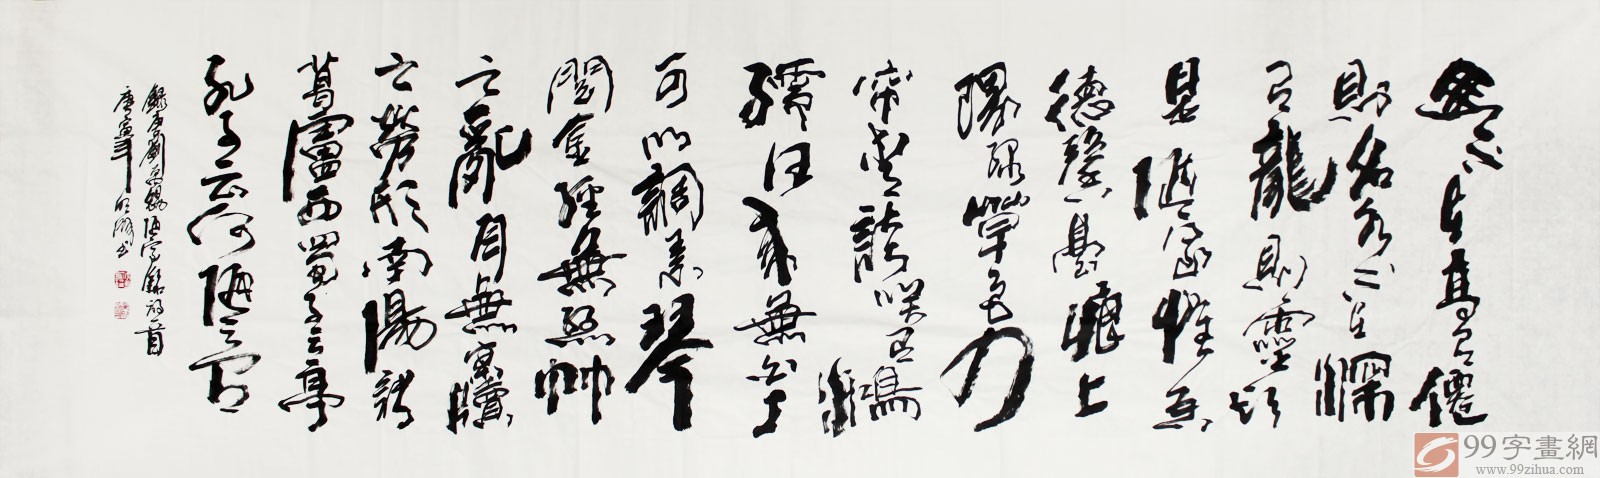 山不在高有僊
則名水不在深
有龍則靈斯
是陋室惟吾
德馨苔痕上
階綠草色入
簾青談笑有鴻
儒往来無白丁
可以調素琴
閱金經無絲竹
之亂耳無案牘
之勞形南陽諸
葛廬西蜀子云亭
孔子云何陋之有
錄唐劉禹錫陋室銘一首
庚寅年
99字畫網
www.99zihua.com